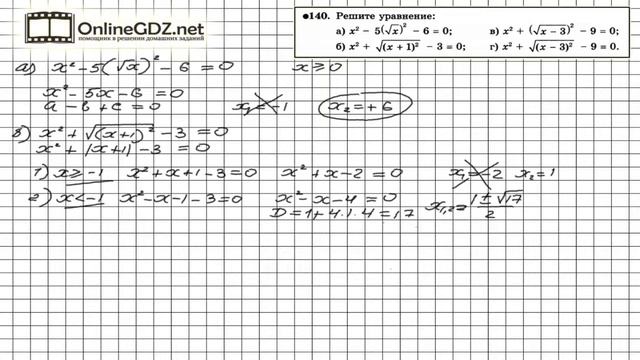 OnlineGDZ.net
помощник в решении домашних заданий
•140. Решите уравнение:
а) x² − 5(√x)² − 6 = 0;
в) x² + (√x − 3)² − 9 = 0;
б) x² + √(x + 1)² − 3 = 0;
г) x² + √(x − 3)² − 9 = 0.
а) x² − 5(√x)² − 6 = 0 x ≥ 0
x² − 5x − 6 = 0
a − b + c = 0 x₁ = −1 x₂ = +6
в) x² + √(x+1)² − 3 = 0
x² + |x+1| − 3 = 0
1) x ≥ −1 x² + x + 1 − 3 = 0 x² + x − 2 = 0 x₁ = −2 x₂ = 1
2) x < −1 x² − x − 1 − 3 = 0 x² − x − 4 = 0 x₁,₂ = 1 ± √17 / 2
D = 1 + 4·1·4 = 17